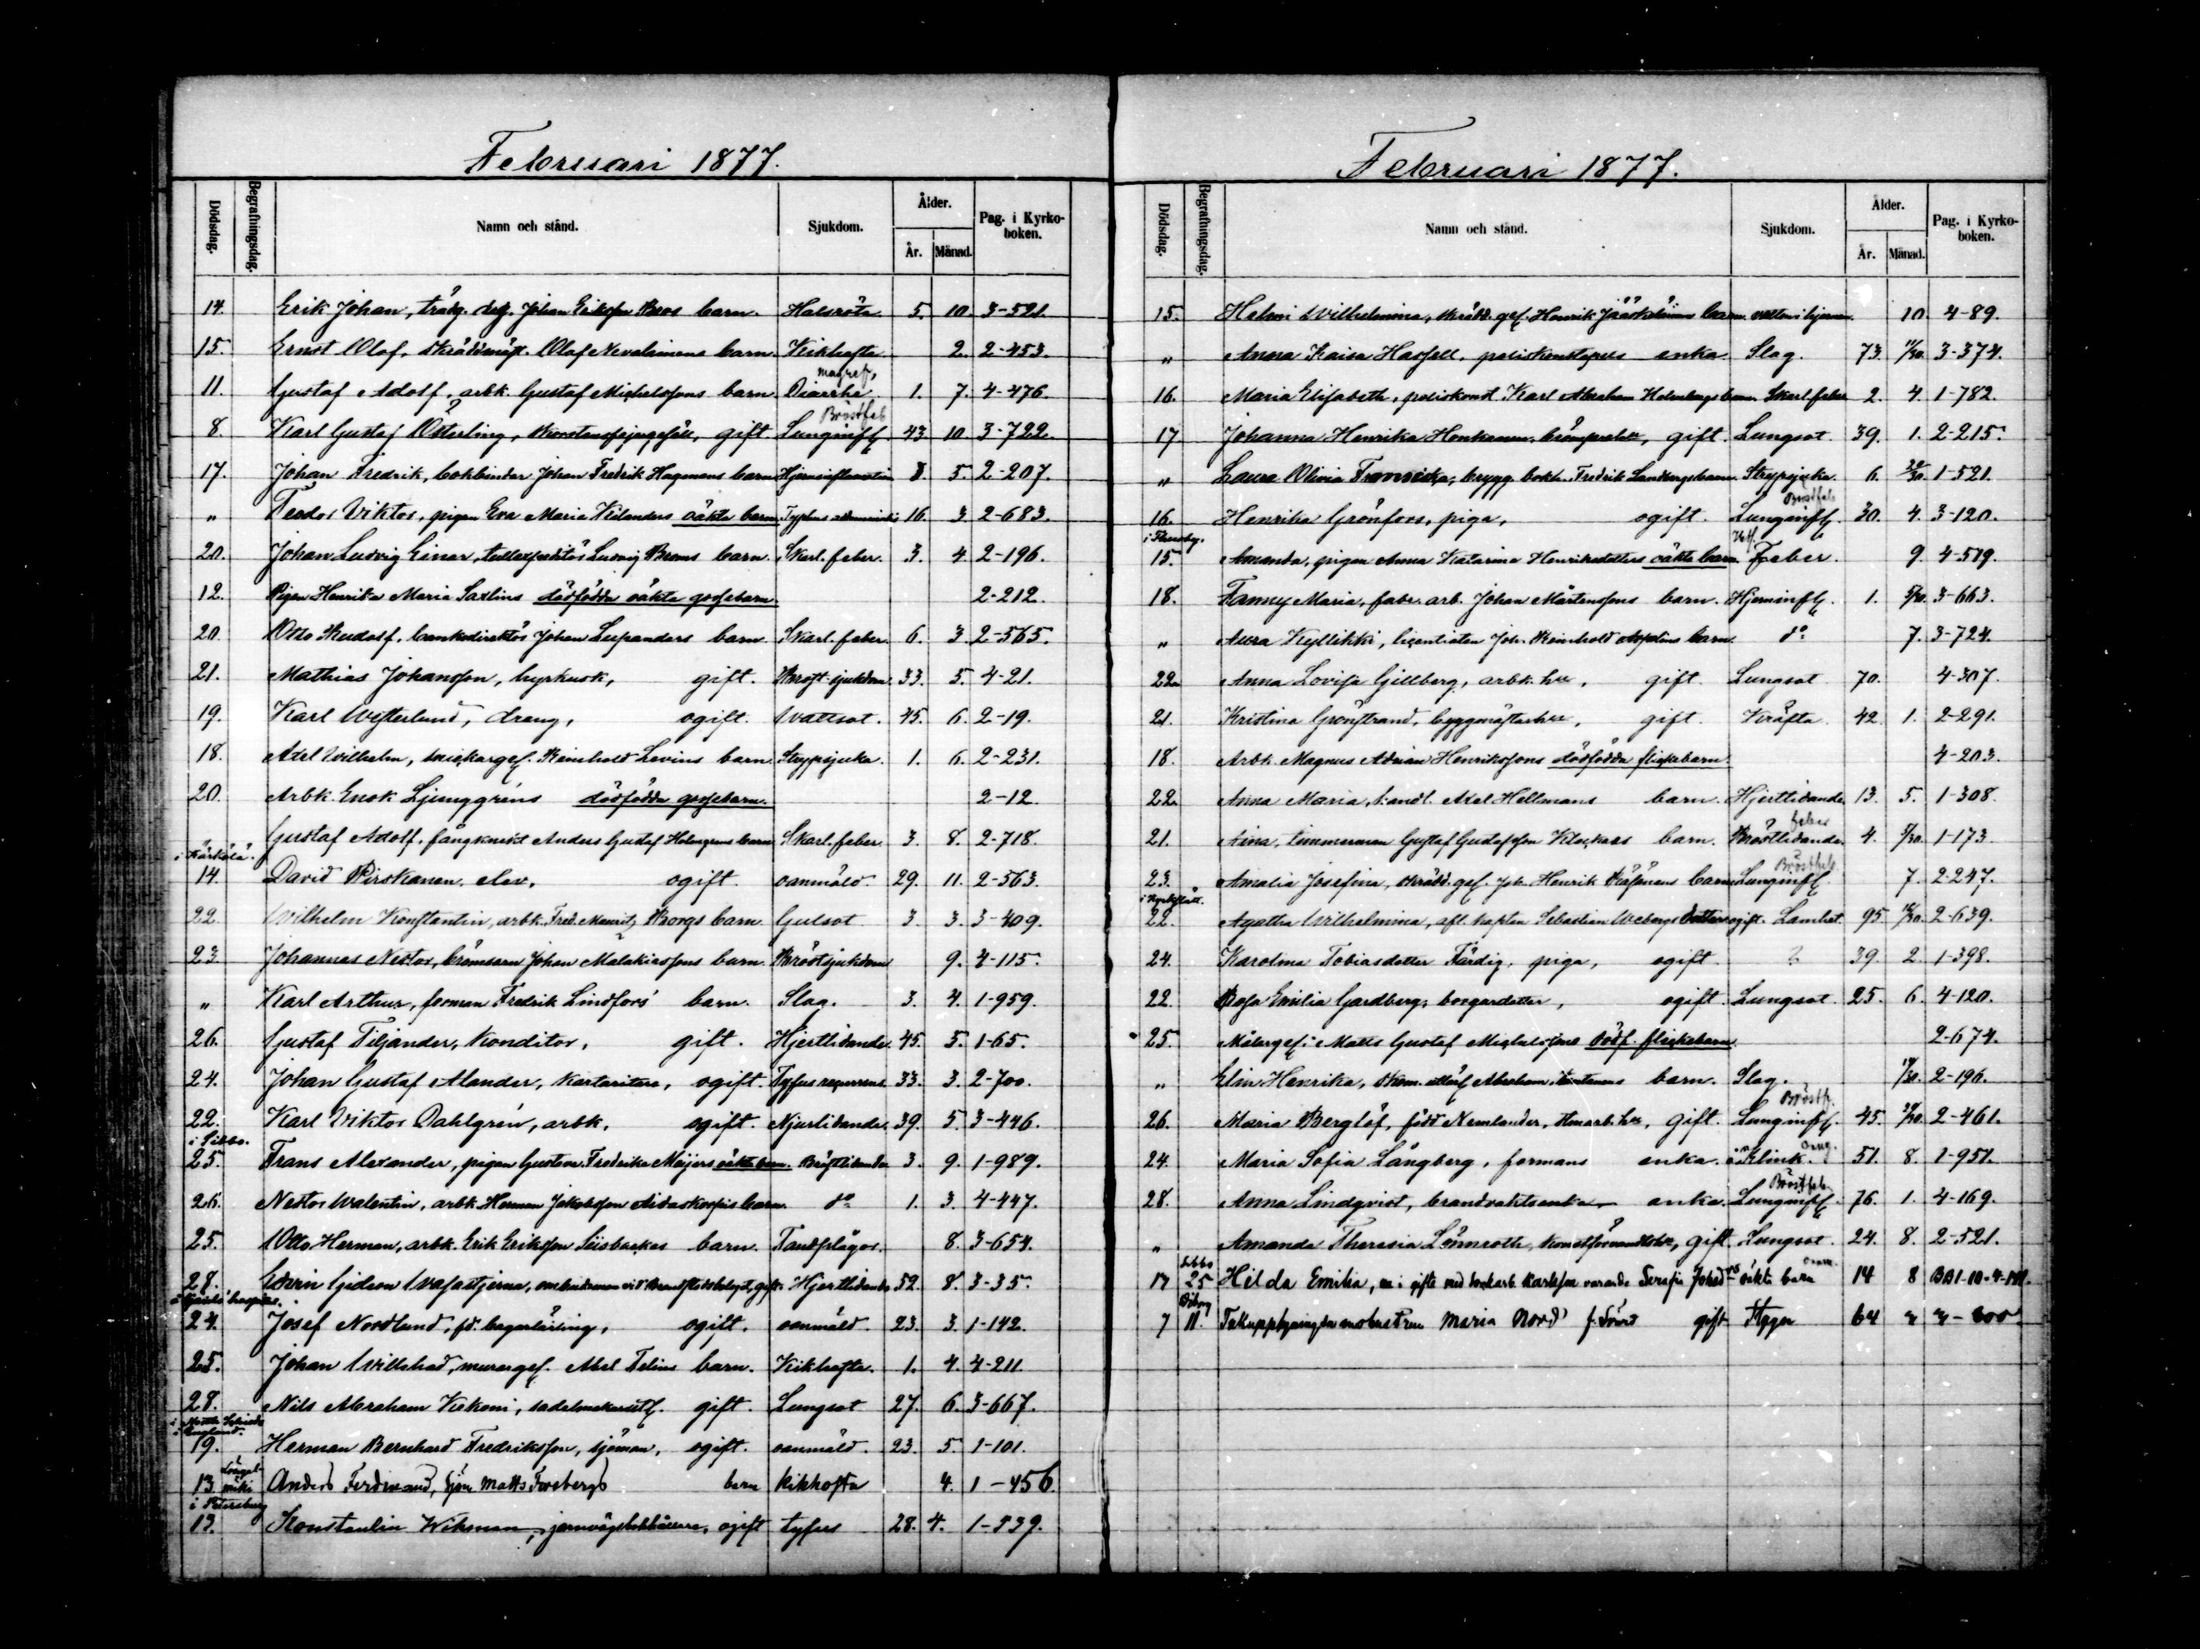 Februari 1877.
Dödsdag. Begrafningsdag. Namn och stånd. Sjukdom. Ålder. År. Månad. Pag. i Kyrko-boken.
14. Erik Johan, Johan Eriksson barn. Halsröta 5. 10. 3-521
15. Ernst Olof, Olof Nevalainens barn. Kikhosta 2. 2-453.
11. Gustaf Adolf, arbk. Gustaf Michelssons barn Diarrhe 1. 7. 4-476.
Bröstfeb
8. Karl Gustaf Österling, gift. Lunginfl. 43 10 3-722.
17. Johan Fredrik, bokbindar Johan Fredrik Hagmans barn Hjerninflamation 8. 5. 2-207.
" Feodor Viktor, pigan Eva Maria Kilanders oäkta barn. Typhus 16. 3 2-683.
20. Johan Ludvig Einar, Ludvig barn. Skarl. feber. 3. 4. 2-196.
12. Pigan Henrika Maria Saxlins dödfödda oäkta gossebarn. 2-212.
20. Otto Rudolf, bankdirektör Johan barn. Skarl. feber. 6. 3. 2-565.
21. Mathias Johansson, hyrkusk, gift. Bröst sjukdom 33. 5. 4-21.
19. Karl Westerlund, dräng, ogift. Wattsot. 45. 6. 2-19.
18. Axel Wilhelm, snickargef. Reinhold Levins barn. Strypsjuka. 1. 6. 2-231.
20. Arbk. Enok Ljunggréns dödfödda gossebarn. 2-12.
Gustaf Adolf, fångknekt Anders Gustaf Holmgrens barn Skarl. feber. 3. 8. 2-718.
i Kärkölä.
14. David Pirskanen, elev, ogift. oanmäld. 29. 11. 2-563.
22. Wilhelm Konstantin, arbk. Fred. Mauritz Borgs barn. Gulsot. 3. 3. 3-409.
23. Johannes Nestor, bromsarn Johan Malakiassons barn. Bröstsjukdom 9. 4-115.
" Karl Arthur, forman Fredrik Lindfors' barn. Slag. 3. 4. 1-959.
26. Gustaf Tiljander, Konditor, gift. Hjertlidande. 45. 5. 1-65.
24. Johan Gustaf Alander, ogift. Tyfus recurrens. 33. 3. 2-700.
22. Karl Viktor Dahlgrén, arbk. ogift. Njurlidande. 39. 5. 3-446.
i Sibbo.
25. Frans Alexander, pigan Gustava Fredrika Meijers oäkta barn. Bröstlidande 3. 9. 1-989.
26. Nestor Walentin, arbk. Herman Jakobsson barn. do 1. 3. 4-447.
25. Otto Herman, arbk. Erik Eriksson barn. Tandplågor. 8. 3-654.
28. Edvin Gideon Wasastjerna, gift. Hjertlidande 52. 8. 3-35.
24. Josef Nordlund, fd. ogift. oanmäld. 23. 3. 1-142.
25. Johan Willehad, murargef. Abel Felins barn. Kikhosta. 1. 4. 4-211
28. Nils Abraham Kekoni, gift. Lungsot 27. 6. 3-667.
i England.
19. Herman Bernhard Fredriksson, sjöman, ogift. oanmäld. 23. 5. 1-101.
13. Anders Ferdinand, sjöm Matts Forsbergs barn kikhosta 4. 1-456
i Petersburg
13. Konstantin Wikman, ogift tyfus 28. 4. 1-539.
Februari 1877.
Dödsdag. Begrafningsdag. Namn och stånd. Sjukdom. Ålder. År. Månad. Pag. i Kyrko-boken.
15. Helmi Wilhelmina, skrädd. gef. Henrik Jääskeläinens barn. 10 4-89.
" Anna Kaisa Hasfelt, poliskonstapels enka Slag. 73. 11/30. 3-374.
16. Maria Elisabeth, poliskonst. Karl Abraham Holmbergs barn. Skarl. feber 2. 4. 1-782.
17 Johanna Henrika Honkanen, gift Lungsot 39. 1. 2-215.
" Laura Olivia Fransiska, brygg. bokh. Fredrik Landbergs barn. Strypsjuka. 6. 1-521.
Bröstfeb
16. Henrika Grönfors, piga, ogift. Lunginfl. 30. 4. 3-120.
15. Amanda, pigan Anna Katarina Henriksdotters oäkta barn. Feber. 9. 4-519.
18. Fanny Maria, fabr. arb. Johan Mårtenssons barn. Hjerninfl. 1. 3-663.
" Aura Kyllikki, licentiaten Joh. Reinhold Aspelins barn. do 7. 3-724.
22. Anna Lovisa Gillberg, arbk. hu, gift. Lungsot 70. 4-307.
21. Kristina Grönstrand, byggmästarhu, gift. Kräfta. 42. 1. 2-291.
18. Arbk. Magnus Adrian Henrikssons dödfödda flickebarn. 4-203.
22. Anna Maria, handl. Axel Hellmans barn. Hjertlidande. 13. 5. 1-308.
feber
21. Aina, timmerman Gustaf Gustafsson Klockars barn. Bröstlidande. 4. 1-173.
Bröstfeb
23. Amalia Josefina, skrädd. gef. Joh. Henrik barn Lunginfl. 7. 2-247.
22. Agatha Wilhelmina, afl. kapten Sebastian Webergs dotter ogift. Lamhet 95. 2-639.
24. Karolina Tobiasdotter Färdig, piga, ogift. ? 39. 2. 1-398.
22. Rosa Emilia Gardberg, borgardotter, ogift. Lungsot. 25. 6. 4-120.
25. Målargef. Matts Gustaf Michelssons dödf. flickebarn. 2-674.
" Elin Henrika, Abraham barn. Slag. 2-196.
Bröstf.
26. Maria Berglöf, född Nemlander, gift. Lunginfl. 45. 2-461.
24. Maria Sofia Långberg, formans enka. Klink. 51. 8. 1-951.
Bröstfeb
28. Anna Lindqvist, brandvaktsenka, enka. Lunginfl. 76. 1. 4-169.
" Amanda Theresia Lönnroth, gift. Lungsot. 24. 8. 2-521.
Sibbo
17 25 Hilda Emilia, Karlsson varande Serafia oäkta barn 14 8
7 11. Maria Nord gift 64